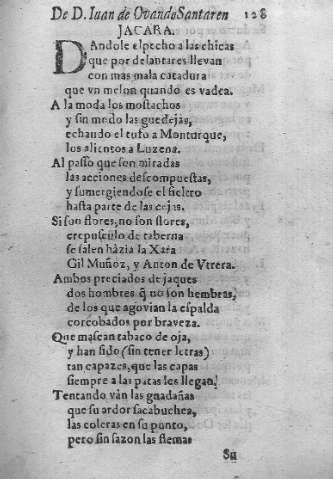 De D. Iuan de Ovando Santaren 128
JACARA.
DAndole el pecho a las chicas
que por delantares llevan
con mas mala catadura
que vn melon quando es vadea.
A la moda los mostachos
y sin modo las guedejas,
echando el tufo a Monturque,
los alientos a Luzena.
Al passo que son miradas
las acciones descompuestas,
y sumergiendose el siclero
hasta parte de las cejas.
Si son flores, no son flores,
crepusculo de taberna
se salen házia la Xara
Gil Muñoz, y Anton de Vtrera.
Ambos preciados de jaques
dos hombres q̃ no son hembras,
de los que agovian la espalda
corcobados por braveza.
Que mascan tabaco de oja,
y han sido (sin tener letras)
tan capazes, que las capas
siempre a las patas les llegan.
Tentando ván las guadañas
que su ardor sacabuchea,
las coleras en su punto,
pero sin sazon las flemas
Su